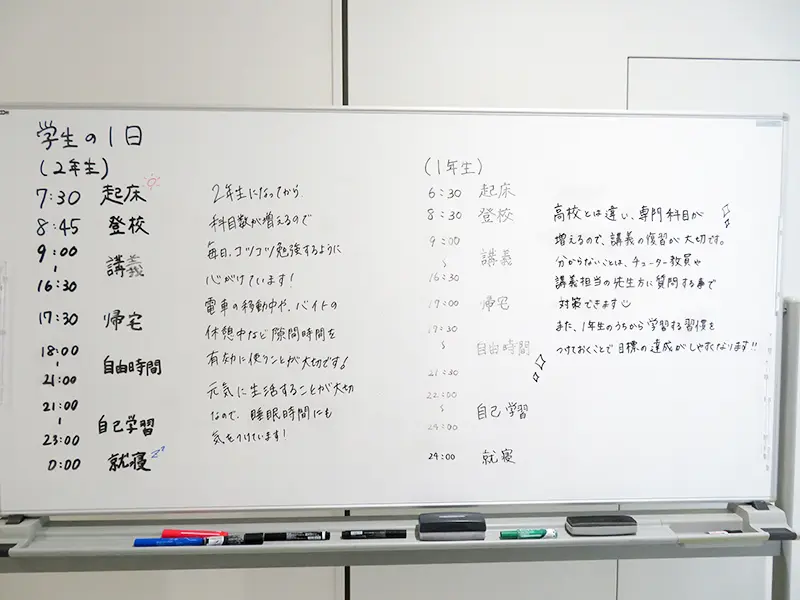 学生の1日
(2年生)
7:30 起床
8:45 登校
9:00
~
16:30
講義
17:30 帰宅
18:00
~
21:00
自由時間
21:00
~
23:00
自己学習
0:00 就寝 zz
2年生になってから
科目数が増えるので
毎日、コツコツ勉強するように
心がけています!
電車の移動中や、バイトの
休憩中など隙間時間を
有効に使うことが大切です!
元気に生活することが大切
なので、睡眠時間にも
気をつけています!
(1年生)
6:30 起床
8:30 登校
9:00
~
16:30
講義
17:00 帰宅
17:30
~
21:30
自由時間
22:00
~
自己学習
24:00 就寝
高校とは違い、専門科目が
増えるので、講義の復習が大切です。
分からないことは、チューター教員や
講義担当の先生方に質問する事で
対策できます
また、1年生のうちから学習する習慣を
つけておくことで目標の達成がしやすくなります!!